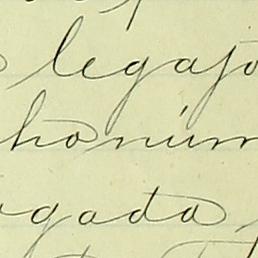 legajo
ho núm
gada